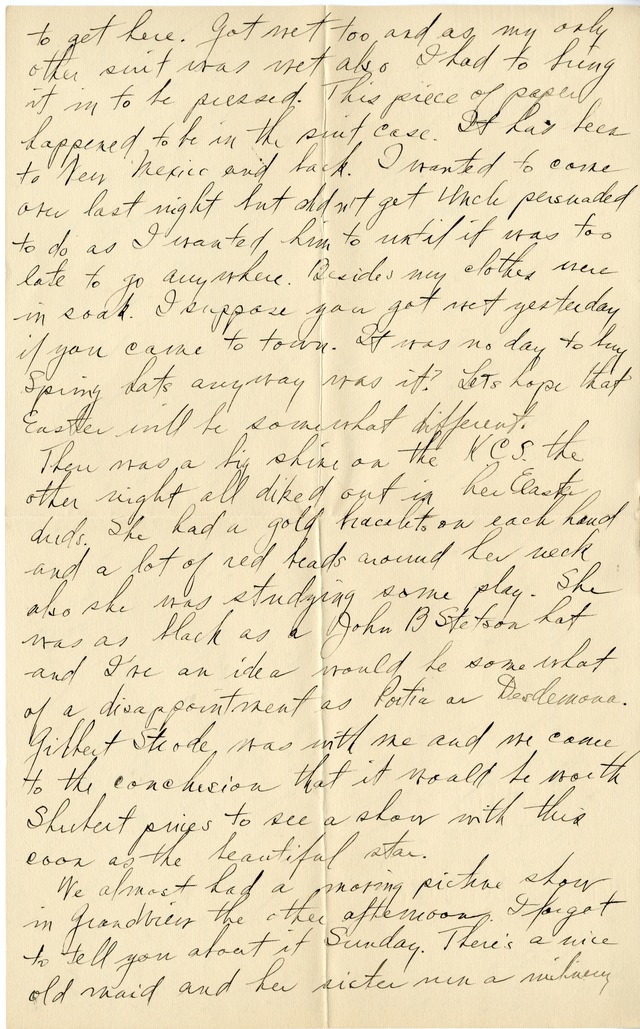 to get here. Got wet too and as my only
other suit was wet also I had to bring
it in to be pressed. This piece of paper
happened to be in the suit case. It has been
to New Mexico and back. I wanted to come
over last night but didn't get Uncle persuaded
to do as I wanted him to until it was too
late to go anywhere. Besides my clothes were
in soak. I suppose you got wet yesterday
if you came to town. It was no day to buy
Spring hats anyway was it? Lets hope that
Easter will be somewhat different.
There was a big shine on the K.C.S. the
other night all diked out in her Easter
duds. She had a gold bracelets on each hand
and a lot of red beads around her neck
also she was studying some play. She
was as black as a John B Stetson hat
and I've an idea would be somewhat
of a disappointment as Portia or Desdemona.
Gilbert Strode was with me and we came
to the conclusion that it would be worth
Shubert prices to see a show with this
coon as the beautiful star.
We almost had a moving picture show
in Grandview the other afternoon. I forgot
to tell you about it Sunday. There's a nice
old maid and her sister run a millinery